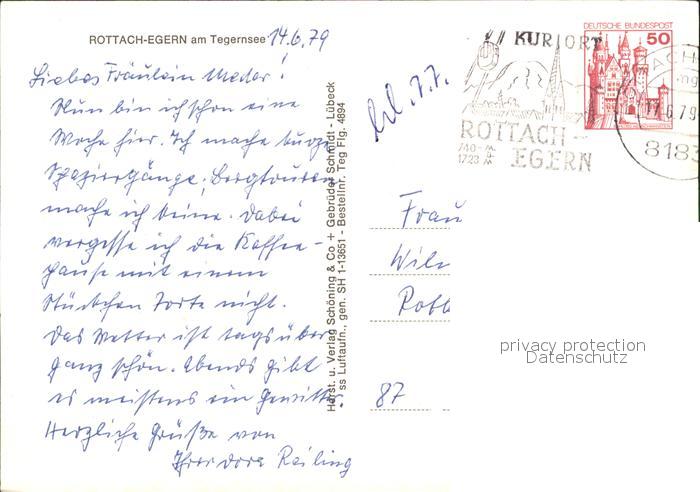 ROTTACH-EGERN am Tegernsee 14.6.79
Liebes Fräulein Meder!
Nun bin ich schon eine
Woche hier. Ich mache kurze
Spaziergänge, Bergtouren
mache ich keine. Dabei
vergesse ich die Kaffee-
pause mit einem
Stückchen Torte nicht.
Das Wetter ist tagsüber
ganz schön. Abends gibt
es meistens ein Gewitter.
Herzliche Grüße von
Reiling
Herst. u. Verlag Schöning & Co + Gebrüder Schmidt - Lübeck
ss Luftaufn., gen. SH 1-13651 - Bestellnr. Teg Flg. 4894
DEUTSCHE BUNDESPOST
50
KURORT
ROTTACH-
EGERN
8183
Frau
87
privacy protection
Datenschutz